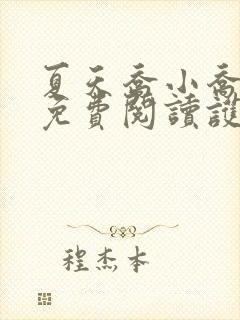 夏天喬小喬
免費閱讀護
程杰本